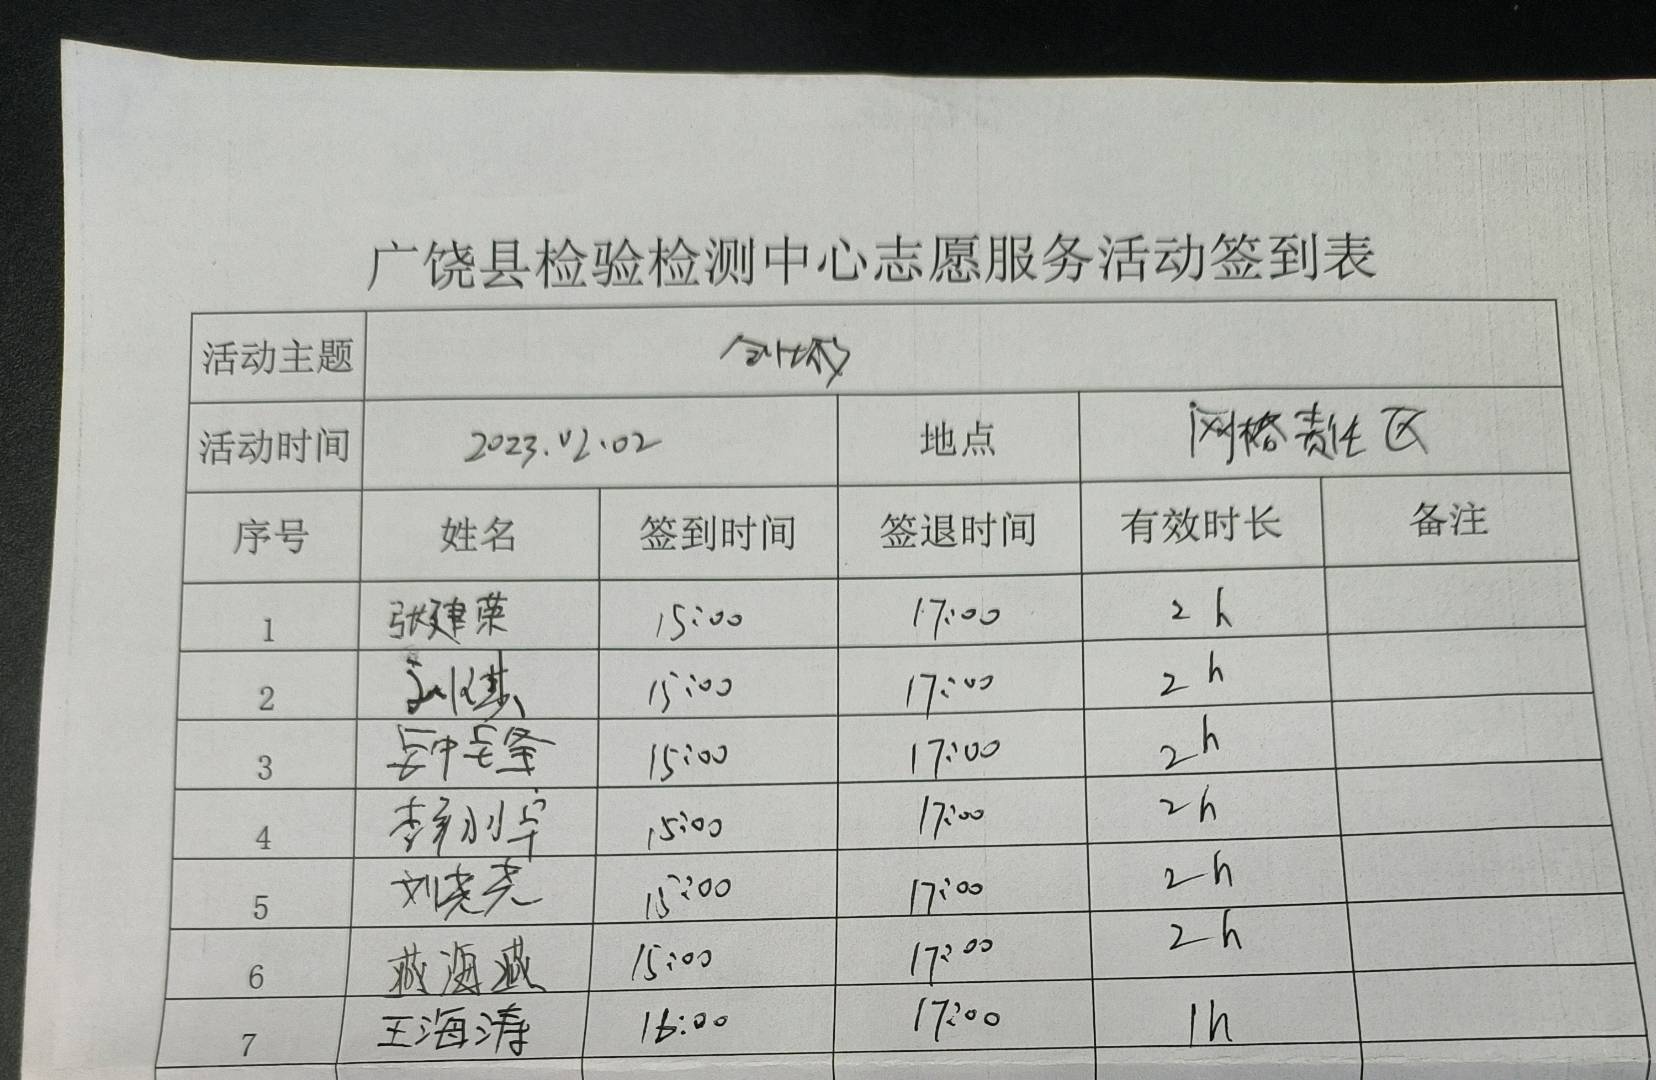 广饶县检验检测中心志愿服务活动签到表
活动主题 创城
活动时间 2023.02.02 地点 网格责任区
序号 姓名 签到时间 签退时间 有效时长 备注
1 张建荣 15:00 17:00 2h
2 15:00 17:00 2h
3 15:00 17:00 2h
4 15:00 17:00 2h
5 刘尧尧 15:00 17:00 2h
6 燕海燕 15:00 17:00 2h
7 王海涛 16:00 17:00 1h